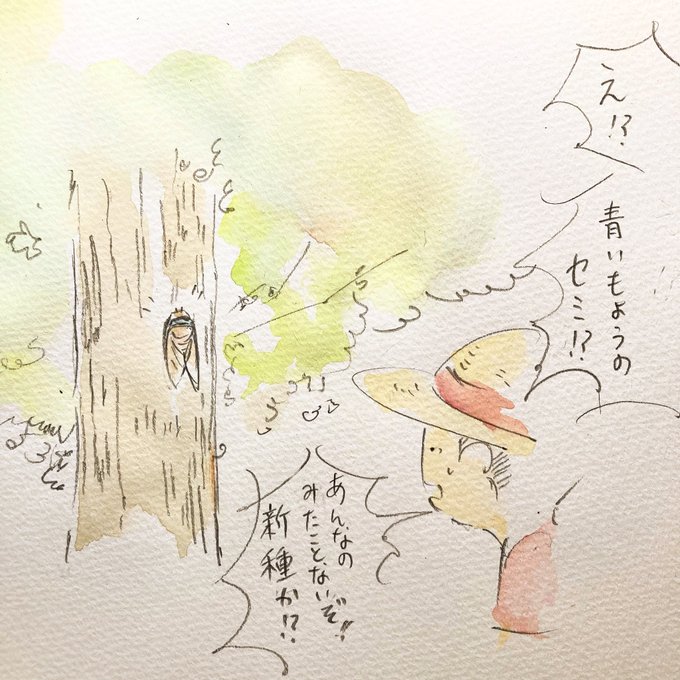 え!?
青いもようの
セミ!?
あんなの
みたことないぞ!!
新種か!?